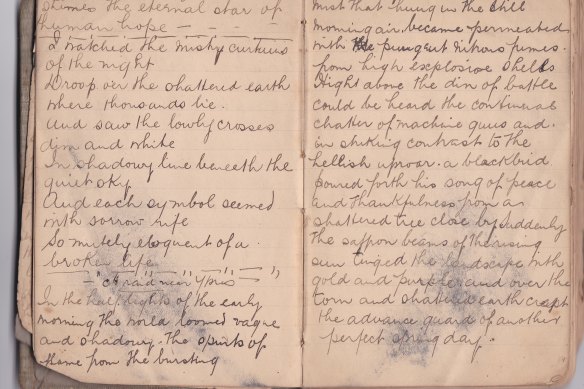 shines the eternal star of
human hope —
I watched the misty curtains
of the night
Droop o'er the shattered earth
where thousands lie.
And saw the lowly crosses
dim and white
In shadowy line beneath the
quiet sky
And each symbol seemed
with sorrow rife
So mutely eloquent of a
broken life
"A raid near Ypres"
In the half lights of the early
morning the world loomed vague
and shadowy. The spirits of
flame from the bursting
mist that hung in the still
morning air, became permeated
with the pungent nitrous fumes.
from high explosive shells
Hight above the din of battle
could be heard the continual
chatter of machine guns and.
in striking contrast to the
hellish uproar. a blackbid
poured forth his song of peace
and thankfulness from a
shattered tree close by. Suddenly
the saffron beams of the rising
sun tinged the landscape with
gold and purple, and over the
torn and shattered earth crept
the advance guard of another
perfect spring day.